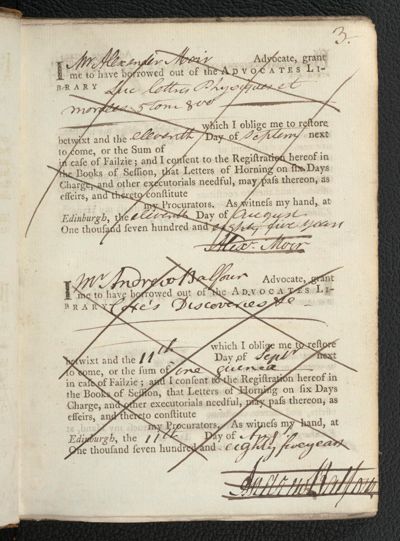 3.
I Mr Alexander Moir Advocate, grant
me to have borrowed out of the ADVOCATES LI-
BRARY Luc lettres Physiques et
morales 5 tom 8vo
which I oblige me to restore
betwixt and the eleventh Day of Septem next
to come, or the Sum of
in case of Failzie; and I consent to the Registration hereof in
the Books of Session, that Letters of Horning on six Days
Charge, and other executorials needful, may pass thereon, as
effeirs, and thereto constitute
my Procurators. As witness my hand, at
Edinburgh, the eleventh Day of August
One thousand seven hundred and eighty five years
Alexr. Moir
I Mr Andrew Balfour Advocate, grant
me to have borrowed out of the ADVOCATES LI-
BRARY Coxe's Discoveries 4to
which I oblige me to restore
betwixt and the 11th Day of Septr next
to come, or the sum of one guinea
in case of Failzie; and I consent to the Registration hereof in
the Books of Session, that Letters of Horning on six Days
Charge, and other executorials needful, may pass thereon, as
effeirs, and thereto constitute
my Procurators. As witness my hand, at
Edinburgh, the 11th Day of
One thousand seven hundred and eighty five years
Andrew Balfour